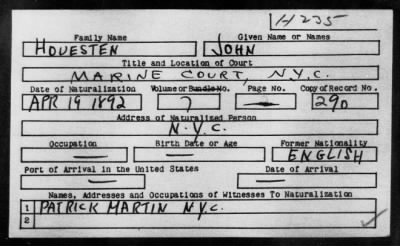 H 235
Family Name Given Name or Names
HOUESTEN JOHN
Title and Location of Court
MARINE COURT, N.Y.C.
Date of Naturalization Volume or Bundle No. Page No. Copy of Record No.
APR 19 1892 7 — 290
Address of Naturalized Person
N.Y.C.
Occupation Birth Date or Age Former Nationality
— — ENGLISH
Port of Arrival in the United States Date of Arrival
— —
Names, Addresses and Occupations of Witnesses To Naturalization
1 PATRICK MARTIN N.Y.C.
2